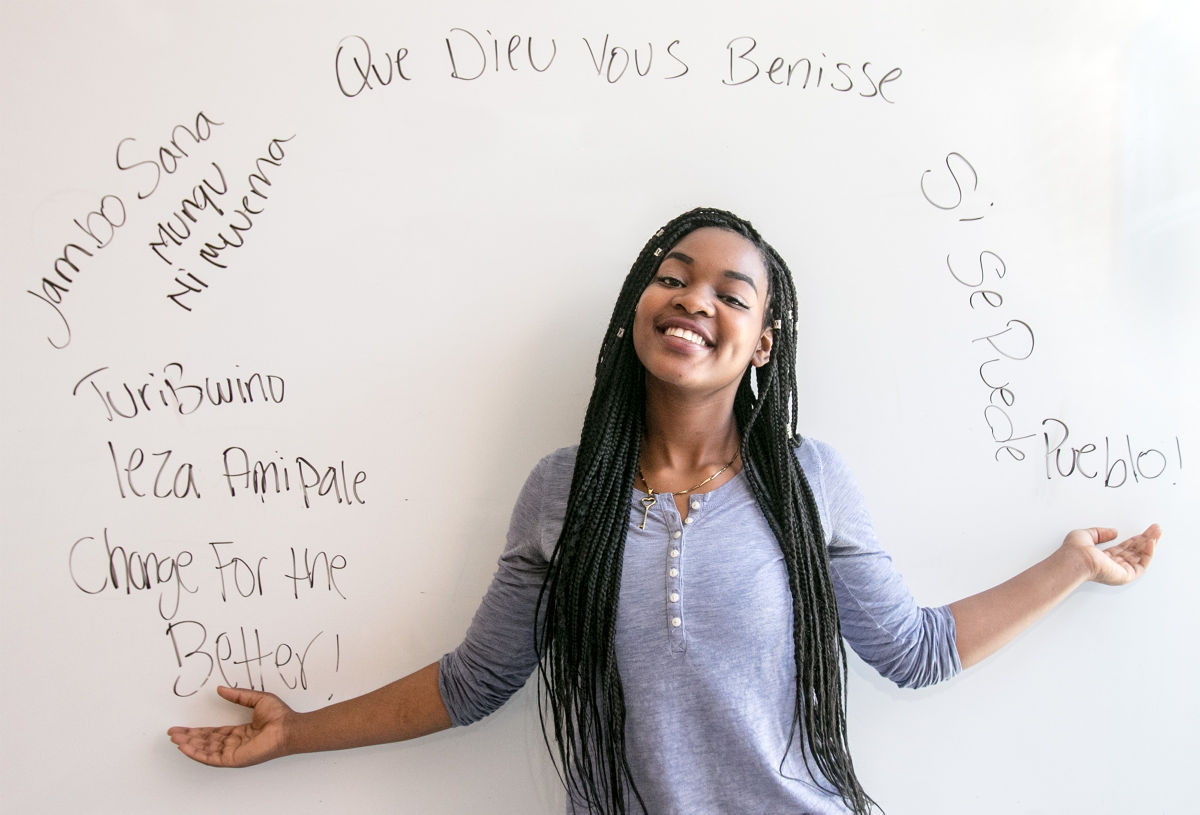 Que Dieu Vous Benisse
Jambo Sana
Mungu
Ni mwema
TuriBwino
leza Amipale
Change For the
Better!
Si Se Puede
Pueblo!